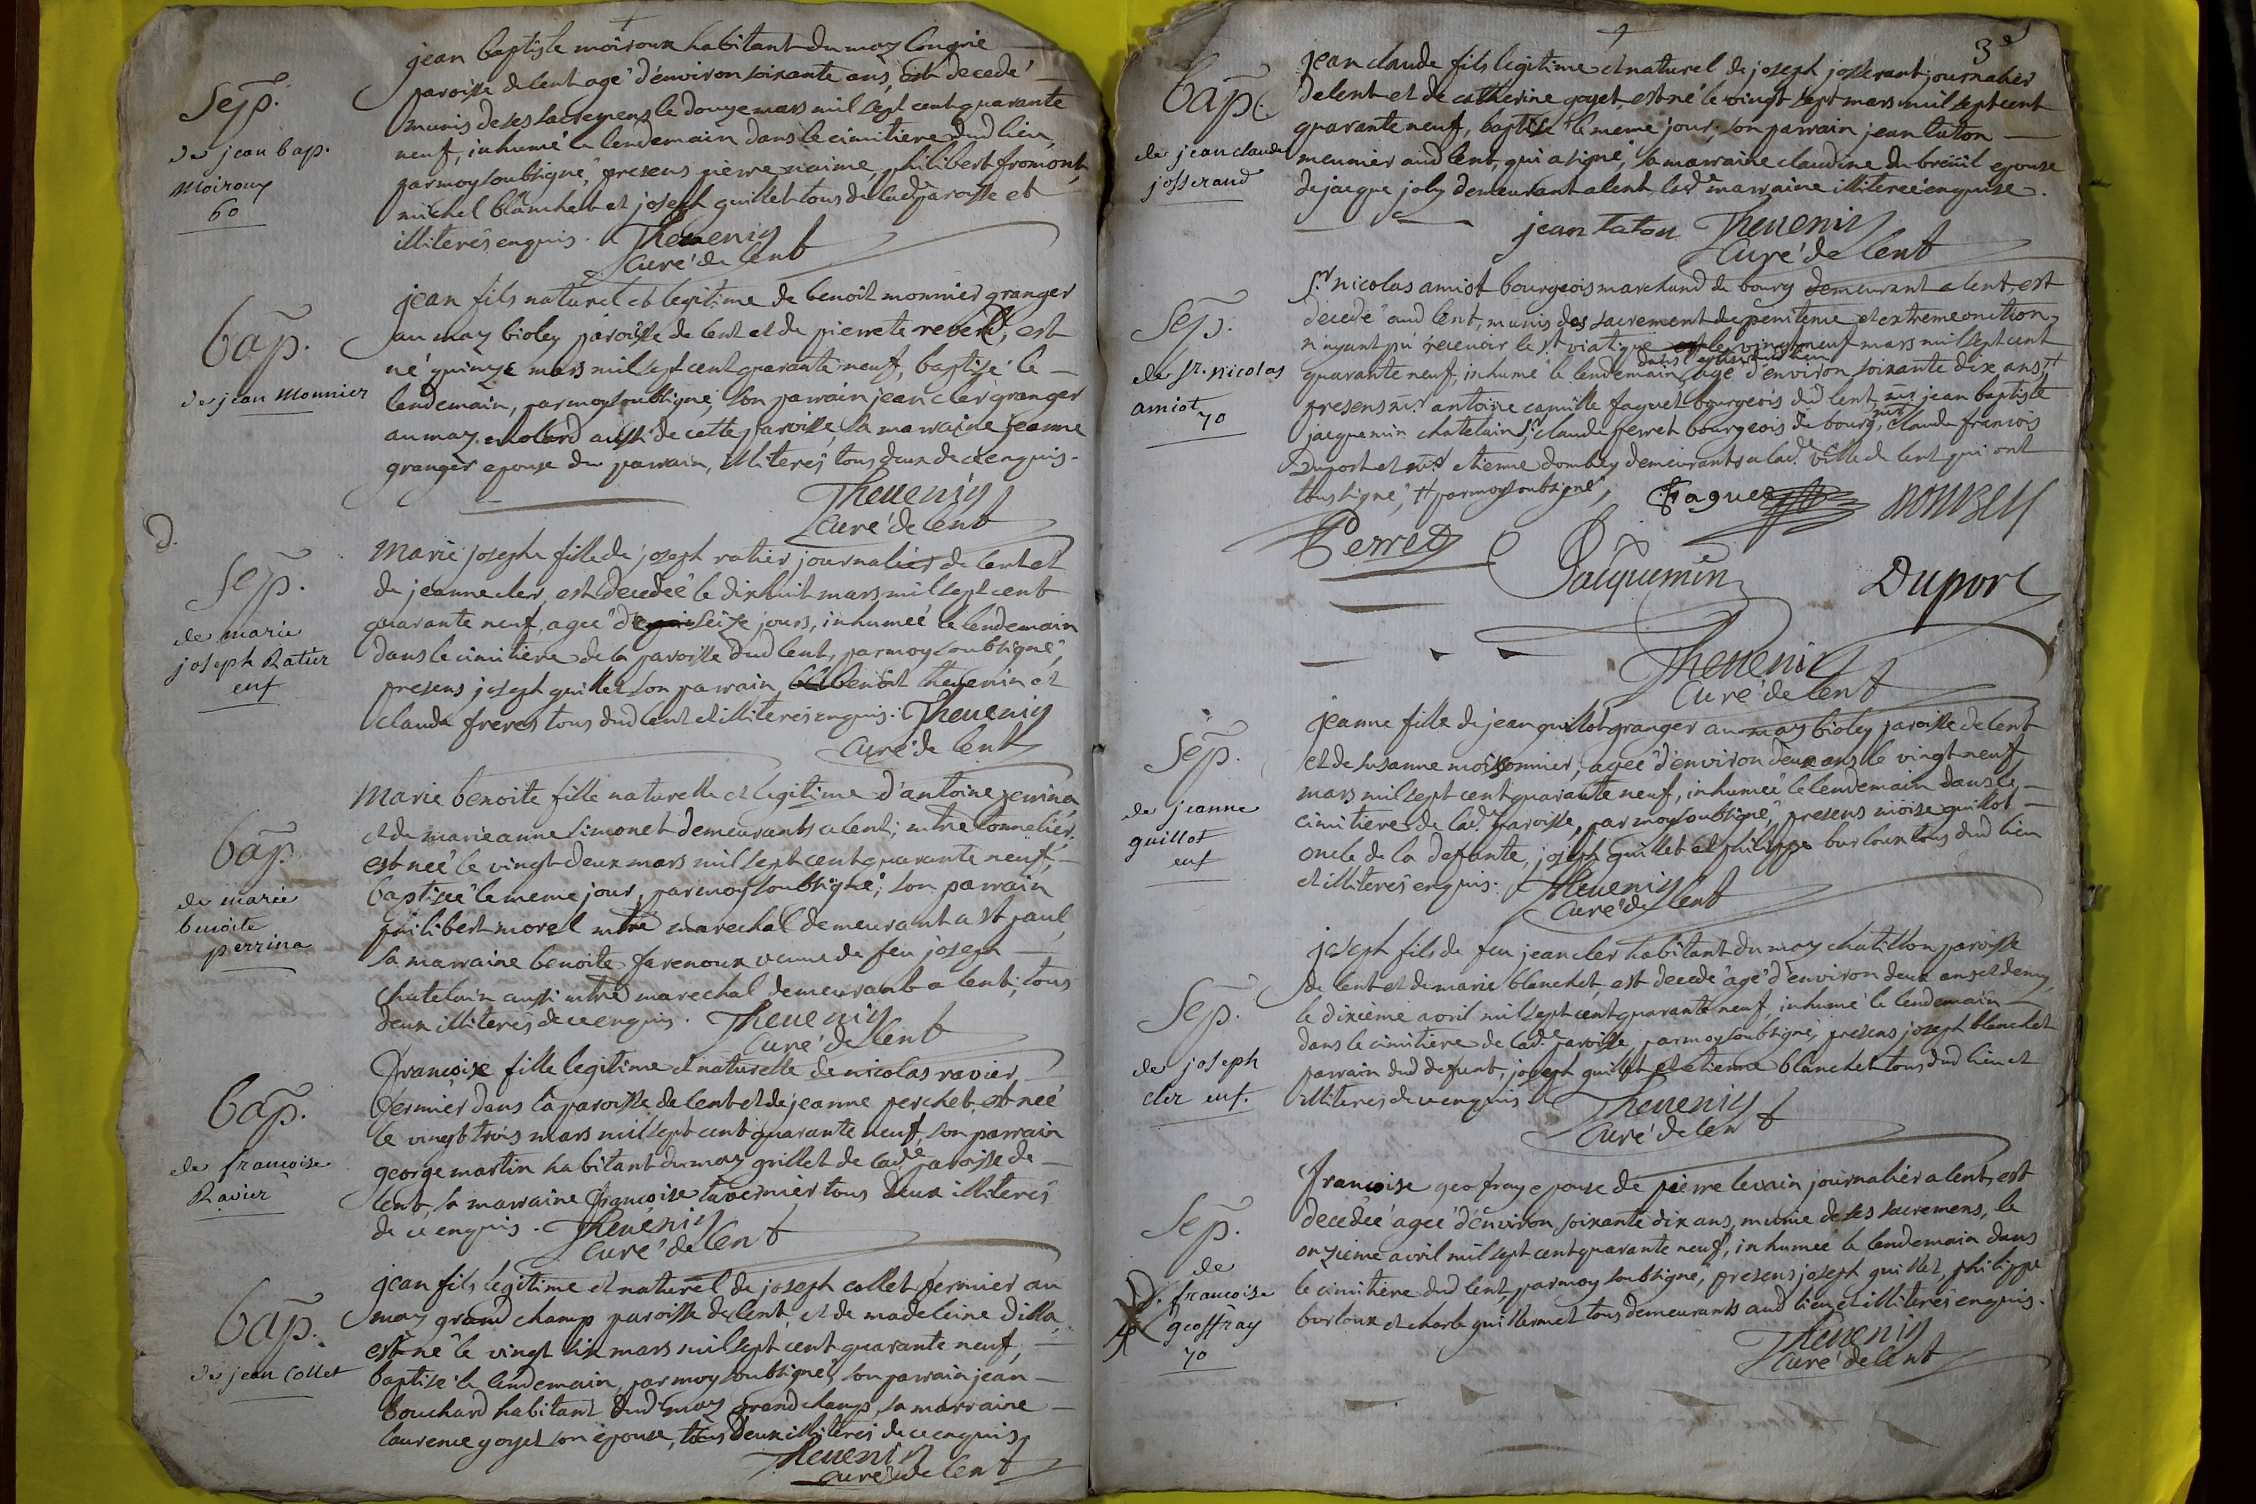 Sep.
de jean bap.
Moiroux
60
jean baptiste moiroux habitant du maz longrie
paroisse de lent agé d'environ soixante ans, est decedé
munis de ses sacremens le douze mars mil sept cent quarante
neuf, inhumé le lendemain dans le cimitiere dud lieu
par moy soubsigné, presens pierre niaime, philibert fromont,
michel blanchet et joseph guillet tous de lad. paroisse et
illiterés enquis. Thevenin
curé de lent
bap.
de jean Monnier
jean fils naturel et legitime de benoit monnier granger
au maz bioley paroisse de lent et de pierrete reverd, est
né quinze mars mil sept cent quarante neuf, baptisé le
lendemain, par moy soubsigné, son parrain jean cler granger
au maz molard aussi de cette paroisse, la marraine jeanne
granger epouse du parrain, illiterés tous deux de ce enquis.
Thevenin
curé de lent
D.
Sep.
de marie
joseph Ratier
enf
Marie josephe fille de joseph ratier journalier de lent et
de jeanne cler, est decedée le dixhuit mars mil sept cent
quarante neuf, agée de seize jours, inhumée le lendemain
dans le cimitiere de la paroisse dud lent, par moy soubsigné,
presens joseph guillet son parrain, benoit thevenin et
claude freres tous dud lent et illiterés enquis. Thevenin
curé de lent
bap.
de marie
benoite
perrina
Marie benoite fille naturelle et legitime d'antoine perrina
et de marie anne simonet demeurants a lent; mtre tonnelier,
est née le vingt deux mars mil sept cent quarante neuf,
baptisée le meme jour, par moy soubsigné, son parrain
philibert morel mtre marechal demeurant a st paul,
sa marraine benoite farenoux veuve de feu joseph
chatelain aussi mtre marechal demeurant a lent, tous
deux illiterés de ce enquis. Thevenin
curé de lent
bap.
de francoise
Ravier
francoise fille legitime et naturelle de nicolas ravier
fermier dans la paroisse de lent et de jeanne perchet, est née
le vingt trois mars mil sept cent quarante neuf, son parrain
george martin habitant du maz grillet de lad. paroisse de
lent, sa marraine francoise tavernier tous deux illiterés
de ce enquis. Thevenin
curé de lent
bap.
de jean Collet
jean fils legitime et naturel de joseph collet fermier au
maz grand champ paroisse de lent, et de madeleine dilla,
est né le vingt six mars mil sept cent quarante neuf,
baptisé le lendemain, par moy soubsigné, son parrain jean
bouchard habitant dud maz grand champ, sa marraine
laurence goyet son epouse, tous deux illiterés de ce enquis
Thevenin
curé de lent
3e
bap.
de jean claude
josserand
jean claude fils legitime et naturel de joseph josserant journalier
de lent et de catherine goyet, est né le vingt sept mars mil sept cent
quarante neuf, baptisé le meme jour, son parrain jean taton
meunier aud lent, qui a signé, sa marraine claudine du breüil epouse
de jacque joly demeurant a lent, lad. marraine illiterée enquise.
jean taton Thevenin
curé de lent
Sep.
de Sr. nicolas
amiot
70
Sr nicolas amiot bourgeois marchand de bourg demeurant a lent, est
decedé aud lent, munis des sacrement de penitence et extreme onction,
n'ayant pû recevoir le st viatique le vingt neuf mars mil sept cent
quarante neuf, inhumé le lendemain agé d'environ soixante dix ans,
presens mr antoine camille faguet bourgeois dud lent, mr jean baptiste
jacquemin chatelain, sr claude perret bourgeois de bourg, mr claude francois
Duport et mr etienne dombey demeurants a lad. ville de lent qui ont
tous signé, par moy soubsigné,
Faguet DOMBEY
Perret Jacquemin Duport
Thevenin
curé de lent
Sep.
de jeanne
guillot
enf
jeanne fille de jean guillot granger au maz bioley paroisse de lent
et de susanne moissonnier, agée d'environ deux ans le vingt neuf
mars mil sept cent quarante neuf, inhumée le lendemain dans le
cimitiere de lad. paroisse, par moy soubsigné, presens moïse guillot
oncle de la defunte, joseph guillet et philippe burloux tous dud lieu
et illiterés enquis. Thevenin
curé de lent
Sep.
de joseph
cler enf.
joseph fils de feu jean cler habitant du maz chatillon paroisse
de lent et de marie blanchet, est decedé agé d'environ deux ans et demy
le dixieme avril mil sept cent quarante neuf, inhumé le lendemain
dans le cimitiere de lad. paroisse, par moy soubsigné, presens joseph blanchet
parrain dud defunt, joseph guillet et etienne blanchet tous dud lieu et
illiterés de ce enquis. Thevenin
curé de lent
Sep.
de
francoise
geoffray
70
francoise geofray epouse de pierre levain journalier a lent, est
decedée agée d'environ soixante dix ans, munie de ses sacremens, le
onzieme avril mil sept cent quarante neuf, inhumée le lendemain dans
le cimitiere dud lent, par moy soubsigné, presens joseph guillet, philippe
burloux et charle guillermet tous demeurants aud lieu et illiterés enquis.
Thevenin
curé de lent